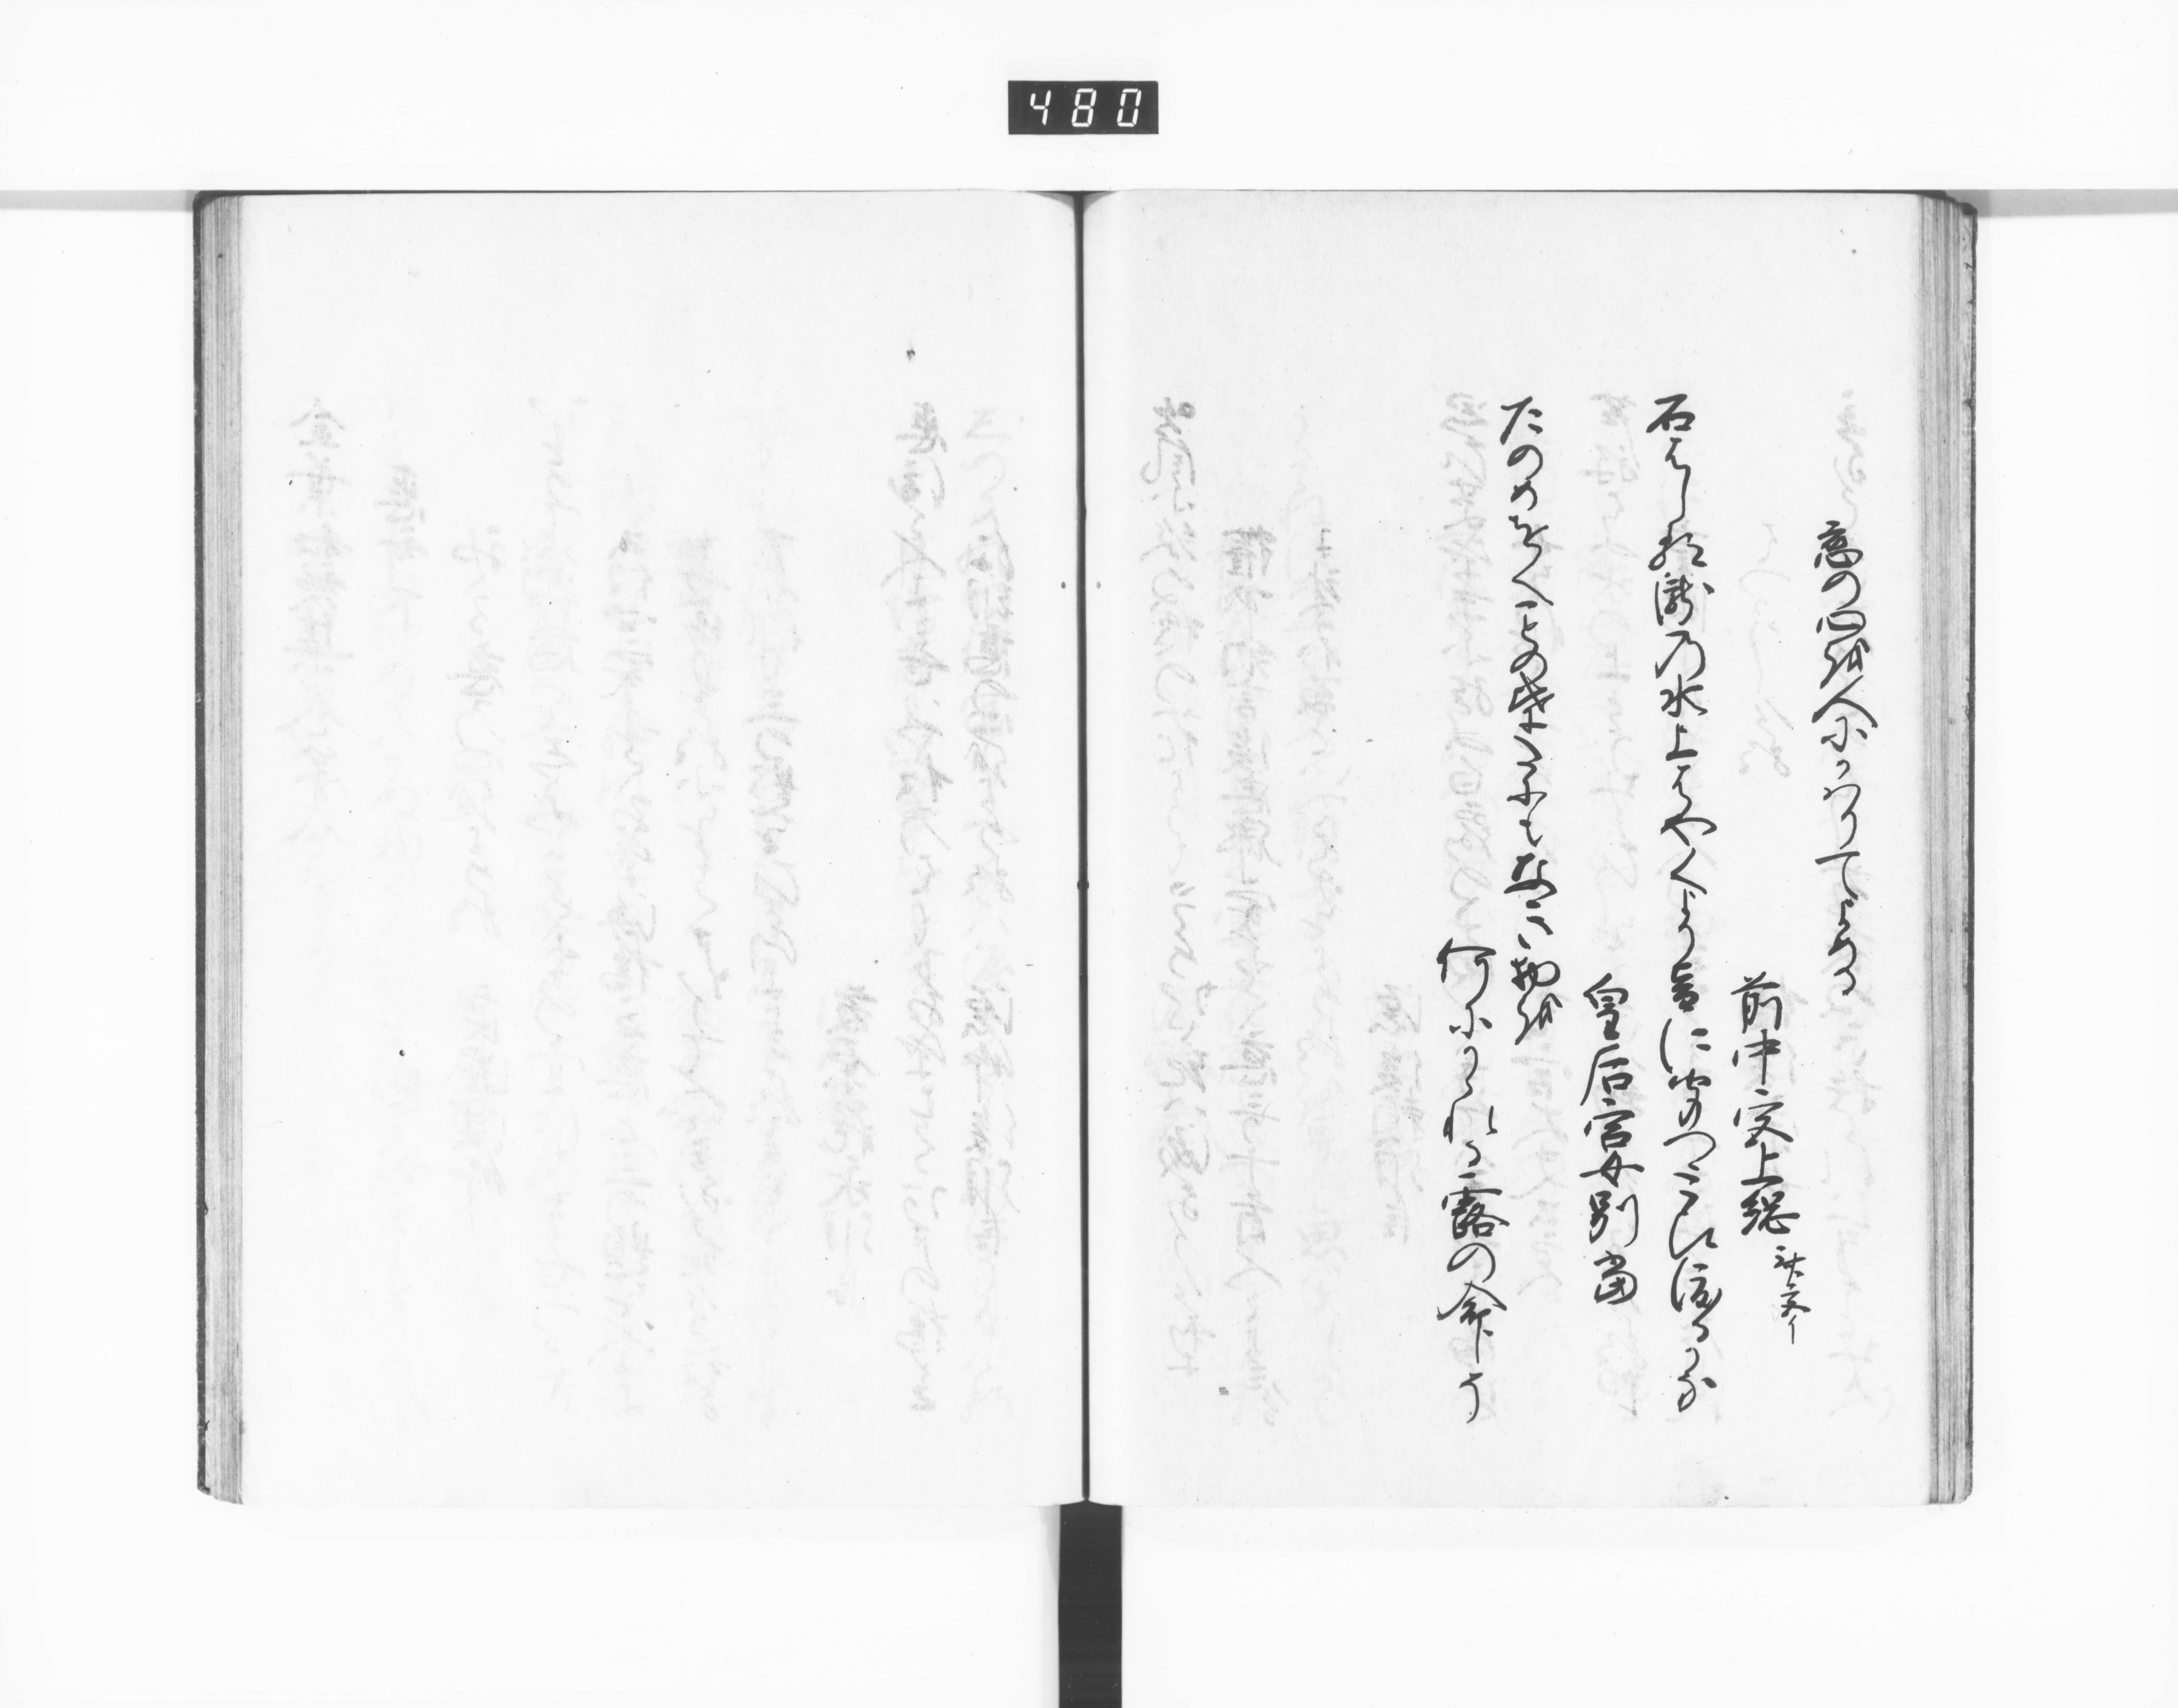 480
恋の心を人にかはりてよめる
前中宮上総
石はしる瀧の水上はやくより音に聞つゝこひ渡るかな
皇后宮女別当
たのめをくことの葉たにもなき物を
何にかゝれる露の命そ